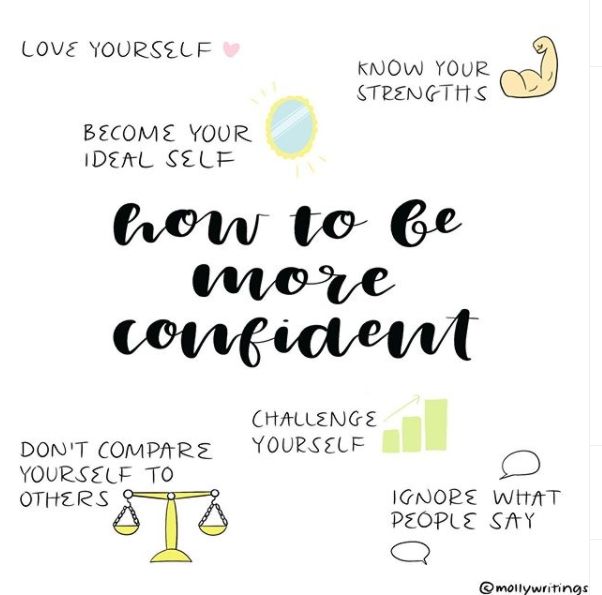 LOVE YOURSELF
KNOW YOUR
STRENGTHS
BECOME YOUR
IDEAL SELF
how to be
more
confident
CHALLENGE
YOURSELF
DON'T COMPARE
YOURSELF TO
OTHERS
IGNORE WHAT
PEOPLE SAY
©mollywritings